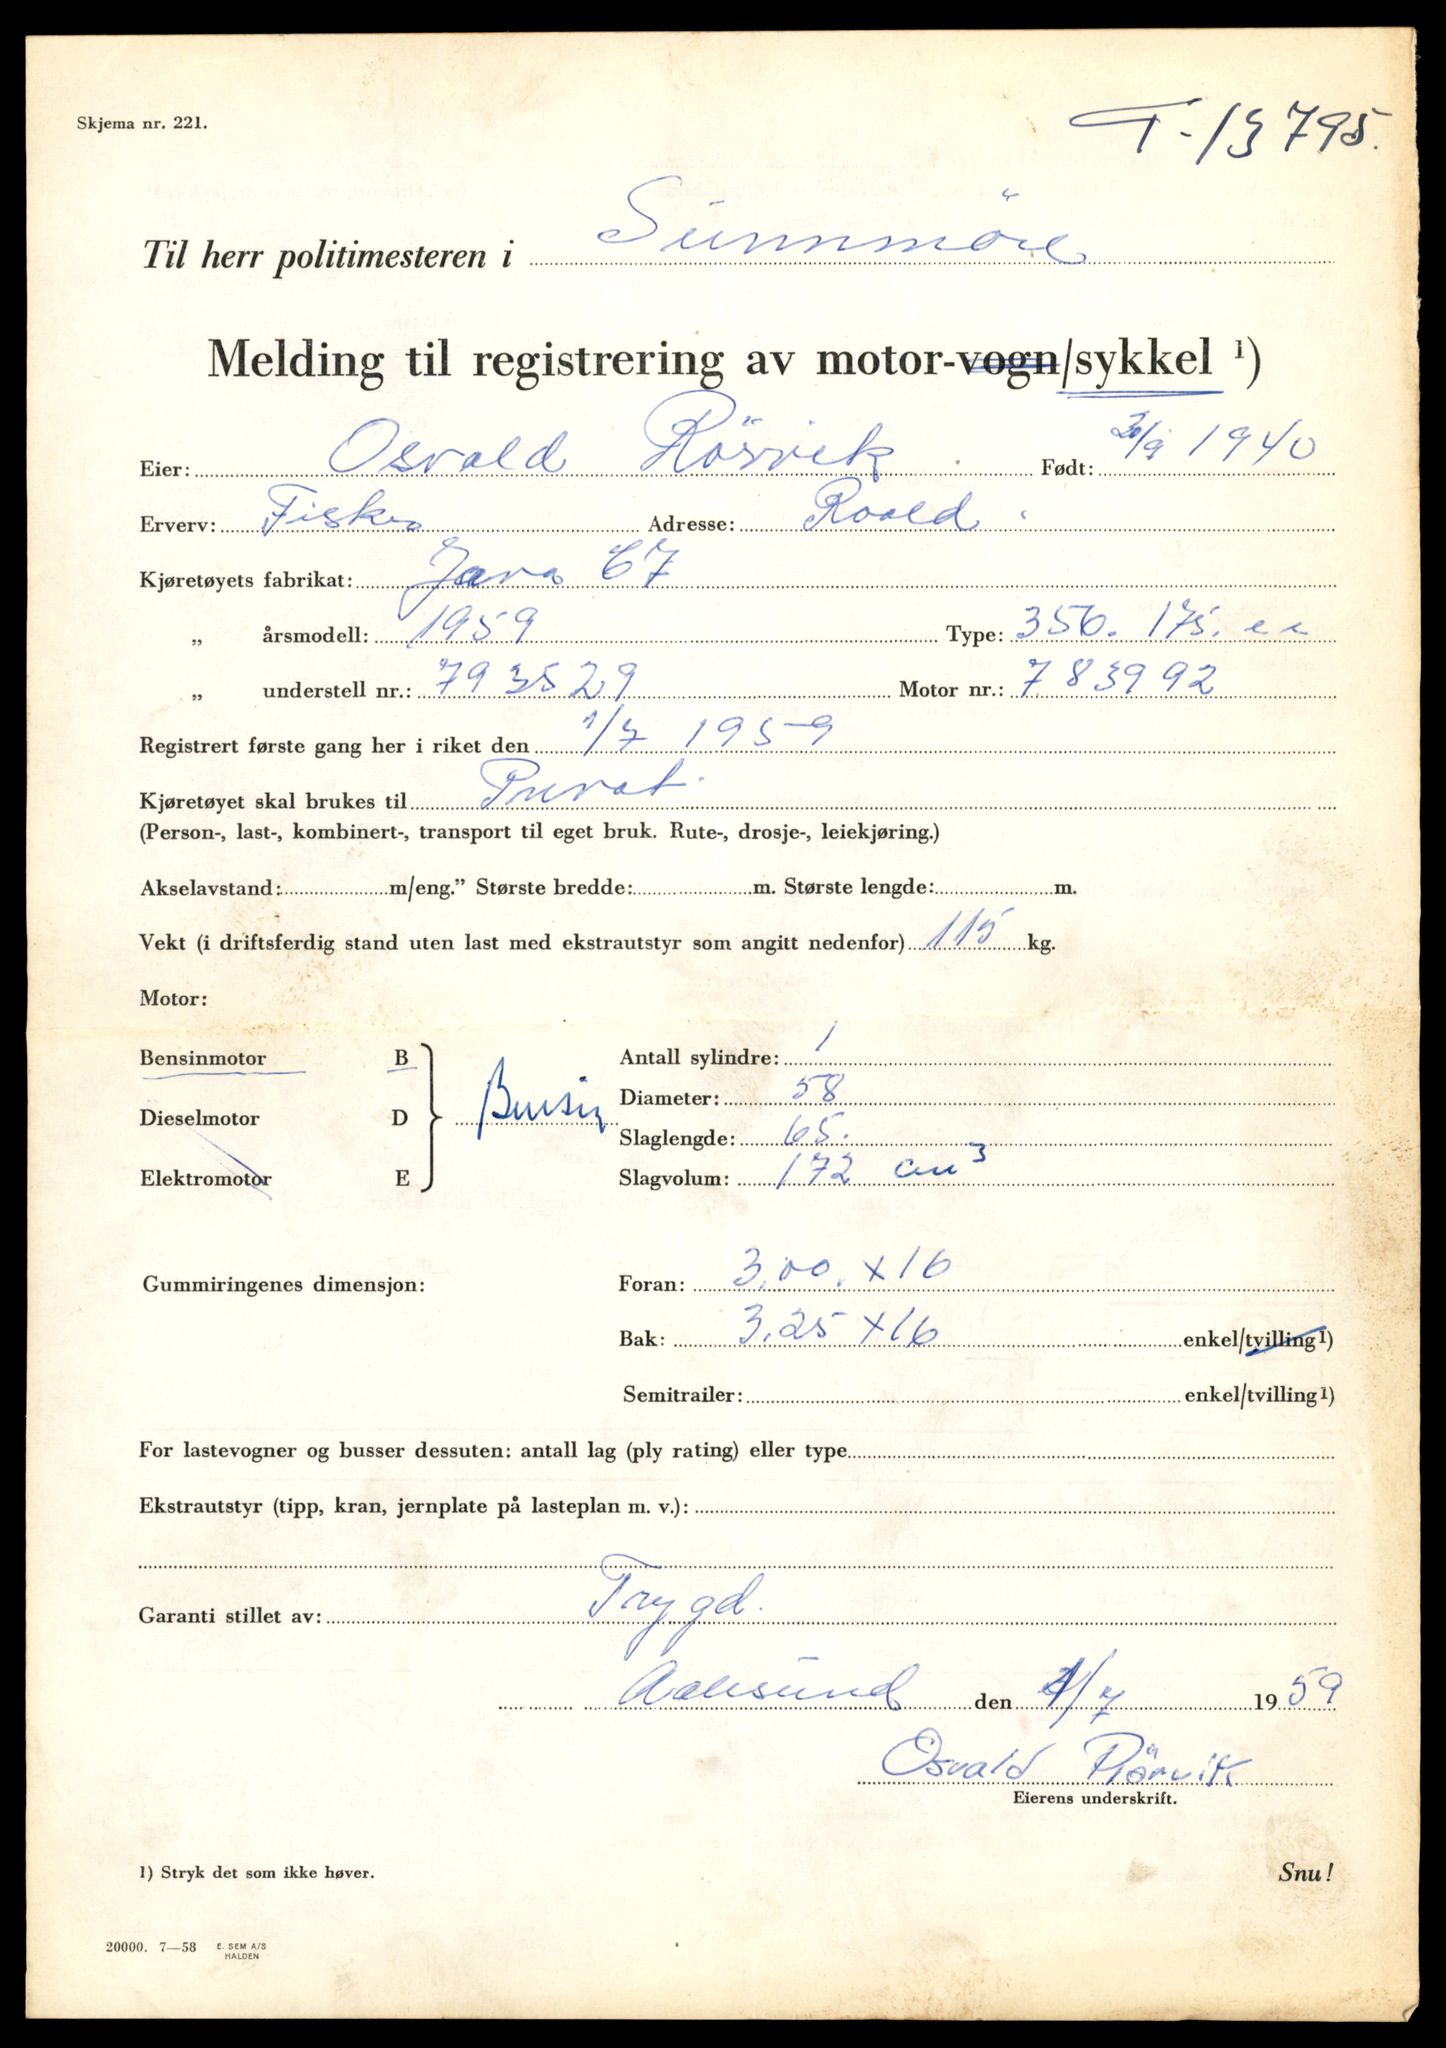 Skjema nr. 221.
T-13795.
Til herr politimesteren i Sunnmöre
Melding til registrering av motor-vogn/sykkel 1)
Eier: Osvald Rörvik Født: 20/9 1940
Erverv: Fisker Adresse: Roald.
Kjøretøyets fabrikat: Jawa CZ
„ årsmodell: 1959 Type: 356. 175. cc
„ understell nr.: 793529 Motor nr.: 783992
Registrert første gang her i riket den 1/7 1959
Kjøretøyet skal brukes til Privat.
(Person-, last-, kombinert-, transport til eget bruk. Rute-, drosje-, leiekjøring.)
Akselavstand: m/eng.” Største bredde: m. Største lengde: m.
Vekt (i driftsferdig stand uten last med ekstrautstyr som angitt nedenfor) 115 kg.
Motor:
Bensinmotor B
Dieselmotor D
Elektromotor E
Bensin
Antall sylindre: 1
Diameter: 58
Slaglengde: 65.
Slagvolum: 172 cm3
Gummiringenes dimensjon: Foran: 3.00. x 16
Bak: 3.25 x 16 enkel/tvilling1)
Semitrailer: enkel/tvilling1)
For lastevogner og busser dessuten: antall lag (ply rating) eller type
Ekstrautstyr (tipp, kran, jernplate på lasteplan m. v.):
Garanti stillet av: Trygd.
Aalesund den 1/7 1959
Osvald Rörvik
Eierens underskrift.
1) Stryk det som ikke høver.
Snu!
20000. 7—58 E. SEM A/S
HALDEN